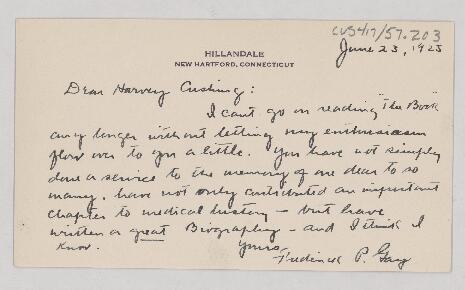 CUS417/57.203
HILLANDALE
NEW HARTFORD, CONNECTICUT
June 23, 1925
Dear Harvey Cushing:
I can't go on reading "The Book"
any longer without letting my enthusiasm
flow over to you a little. You have not simply
done a service to the memory of one dear to so
many, have not only contributed an important
chapter to medical history – but have
written a great Biography – and I think I
know.
Yours,
Frederick P. Gay